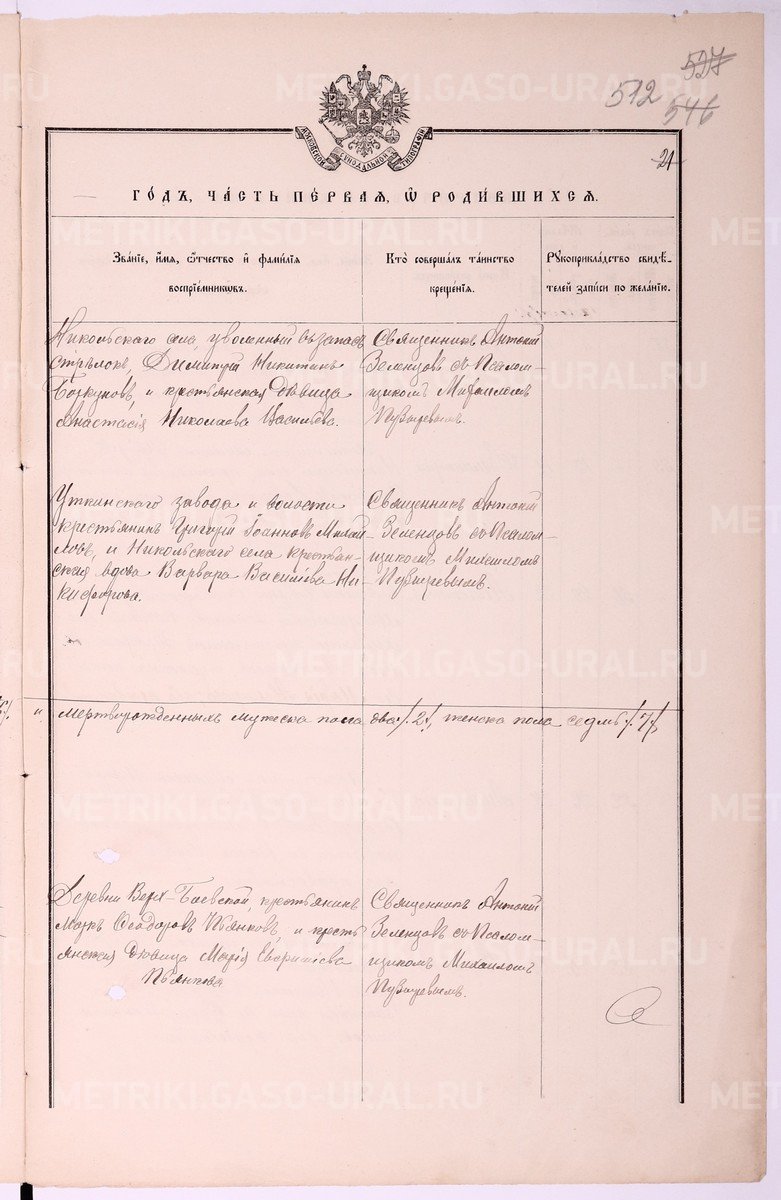 527
512
546
МОСКОВСКОЙ СѴНОДАЛЬНОЙ ТИПОГРАФІИ
21
ГО́ДЪ, ЧА́СТЬ ПЕ́РВАЯ, Ѡ҆ РОДИ́ВШИХСЯ.
Зва́ніе, и҆́мя, ѻ҆́тчество и҆ фами́лія
воспріе́мниковъ.
Кто̀ соверша́лъ та́инство
креще́нія.
Рꙋкоприкла́дство свидѣ́-
телей за́писи по жела́нію.
Никольскаго села, уволенный въ запасъ
стрѣлокъ, Димитрій Никитинъ
и крестьянская дѣвица
Анастасія Николаева Васильева.
Священникъ Антоній
Зеленцовъ съ Псалом-
щикомъ Михаиломъ
Пузыревымъ.
Уткинскаго завода и волости
крестьянинъ Григорій Іоанновъ Михай-
ловъ, и Никольскаго села крестьян-
ская вдова Варвара Василіева Ни-
кифорова.
Священникъ Антоній
Зеленцовъ съ Псалом-
щикомъ Михаиломъ
Пузыревымъ.
" мертворожденныхъ мужеска пола два /.2./, женска пола седмь /.7./
Деревни Верх-Боевской, крестьянинъ
Маркъ Ѳеодоровъ Пьянковъ, и кресть
янская дѣвица Марія
Пьянкова
Священникъ Антоній
Зеленцовъ съ Псалом-
щикомъ Михаиломъ
Пузыревымъ.
METRIKI.GASO-URAL.RU